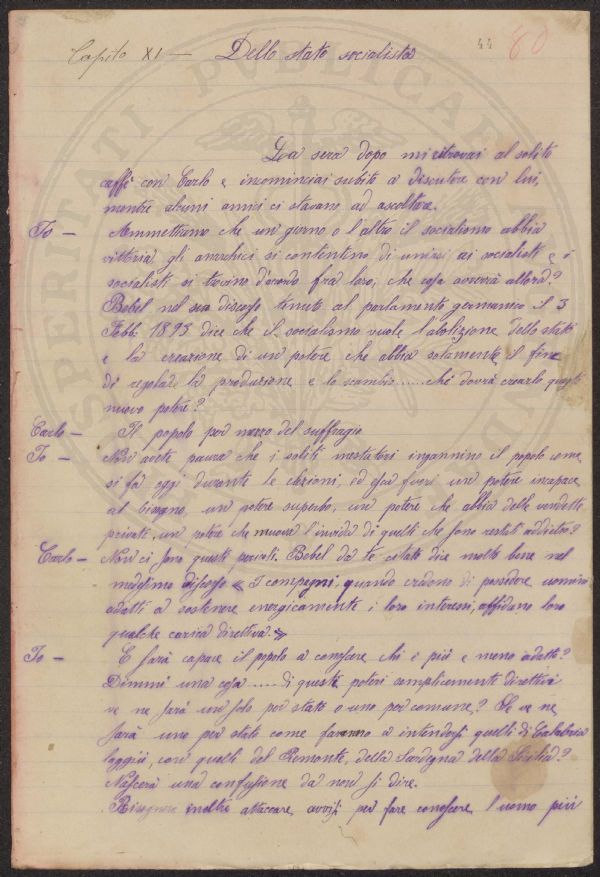 Capito XI — Dello stato socialista
44 80
La sera dopo mi ritrovai al solito
caffè con Carlo e incominciai subito a discutere con lui,
mentre alcuni amici ci stavano ad ascoltare.
Io — Ammettiamo che un giorno o l'altro il socialismo abbia
vittoria gli anarchici si contentino di unirsi ai socialisti e i
socialisti si trovino d'accordo fra loro, che cosa avverrà allora?
Bebel nel suo discorso tenuto al parlamento germanico il 3
Febb. 1893 dice che il socialismo vuole l'abolizione dello stato
e la creazione di un potere che abbia solamente il fine
di regolare la produzione e lo scambio......chi dovrà crearlo questo
nuovo potere?
Carlo — Il popolo per mezzo del suffragio
Io — Non avete paura che i soliti mestatori ingannino il popolo come
si fa oggi durante le elezioni, ed esca fuori un potere incapace
al bisogno, un potere superbo, un potere che abbia delle vendette
private, un potere che muova l'invidia di quelli che sono restati addietro?
Carlo — Non ci sono questi pericoli. Bebel da te citato dice molto bene nel
medesimo discorso « I compagni, quando credono di possedere uomini
adatti a sostenere energicamente i loro interessi, affidano loro
qualche carica direttiva.»
Io — E sarà capace il popolo a conoscere chi è più e meno adatto?
Dimmi una cosa.....di questi poteri semplicemente direttivi
ve ne sarà un solo per stato o uno per comune? Se ve ne
sarà uno per stato come faranno a intendersi quelli di Calabria
laggiù, con quelli del Piemonte, della Sardegna della Sicilia?
Nascerà una confusione da non si dire.
Bisognerà inoltre attaccare avvisi per fare conoscere l'uomo più